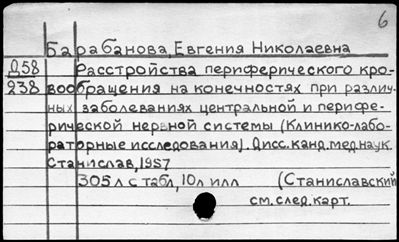 6
Барабанова, Евгения Николаевна
Д58 Расстройства периферического кро-
238 вообращения на конечностях при различ-
ных заболеваниях центральной и перифе-
рической нервной системы (Клинико-лабо-
раторные исследования). Дисс. канд. мед. наук.
Станислав, 1957
305 л с табл, 10 л илл (Станиславский
см. след. карт.